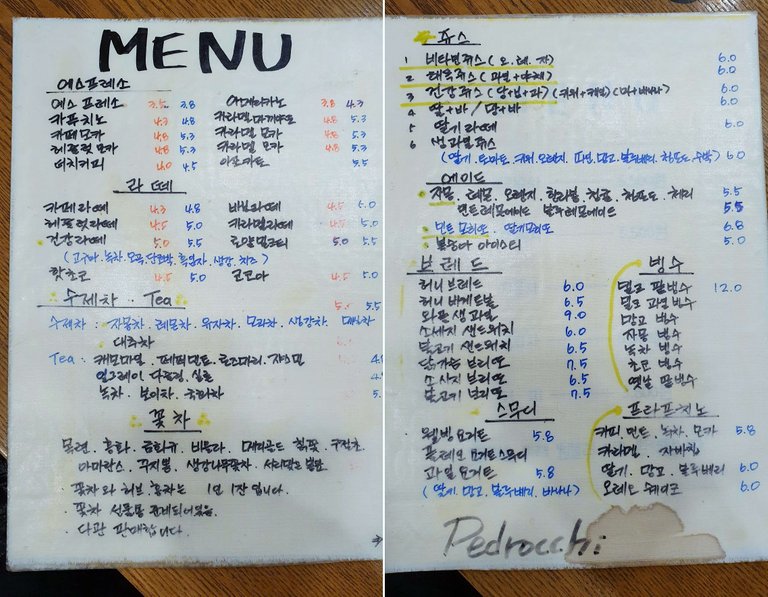 MENU
에스프레소
에스프레소 3.5 3.8
카푸치노 4.3 4.8
카페모카 4.8 5.3
헤즐럿모카 4.8 5.3
더치커피 4.0 4.5
아메리카노 3.8 4.3
카라멜마끼아또 4.8 5.3
카라멜 모카 4.8 5.3
카라멜 모카 4.8 5.3
아포카토 5.5
라떼
카페라떼 4.3 4.8
헤즐럿라떼 4.5 5.0
건강라떼 5.0 5.5
(고구마, 녹차, 오곡, 단호박, 흑임자, 생강, 치즈)
핫초코 4.5 5.0
바닐라떼 4.5 5.0
카라멜라떼 4.5 5.0
로얄밀크티 5.0 5.5
코코아 4.5 5.0
수제차 · Tea 5.5
수제차 : 자몽차, 레몬차, 유자차, 모과차, 생강차,
대추차
Tea : 캐모마일, 페퍼민트, 로즈마리, 자스민
얼그레이, 다즐링, 실론
녹차, 보이차, 국화차
꽃차
목련, 홍화, 금화규, 비트차, 메리골드, 칡꽃, 구절초,
아마란스, 꾸지뽕, 생강나무꽃차
· 꽃차와 허브, 홍차는 1인 1잔 입니다.
· 꽃차 선물용 준비되어있음.
· 다관 판매합니다.
쥬스
1 비타민쥬스 (오, 레, 자) 6.0
2 해독쥬스 (과일+야채) 6.0
3 건강쥬스 (당+납+과) (키위+케일) (마+바나나) 6.0
4 딸+바 / 당+바 6.0
5 딸기라떼 6.0
6 생과일쥬스
(딸기, 토마토, 키위, 오렌지, 파인, 망고, 블루베리, 청포도, 수박) 6.0
에이드
· 자몽, 레몬, 오렌지, 한라봉, 청귤, 청포도, 체리 5.5
민트레몬에이드 블루레몬에이드 5.5
· 민트모히또, 딸기모히또 6.8
· 복숭아 아이스티 5.0
브레드
허니브레드 6.0
허니 바게트볼 6.5
와플 생과일 9.0
소세지 샌드위치 6.0
불고기 샌드위치 6.5
닭가슴 브리또 7.5
소시지 브리또 6.5
불고기 브리또 7.5
빙수
밀크 팥빙수 12.0
밀크 과일빙수
망고 빙수
자몽 빙수
녹차 빙수
초코 빙수
옛날 팥빙수
스무디
웰빙요거트 5.8
플레인 요거트스무디
과일 요거트 5.8
(딸기, 망고, 블루베리, 바나나)
프라프치노
커피, 민트, 녹차, 모카 5.8
카라멜, 자바칩
딸기, 망고, 블루베리 6.0
오레오 쉐이크 6.0
Pedrocchi